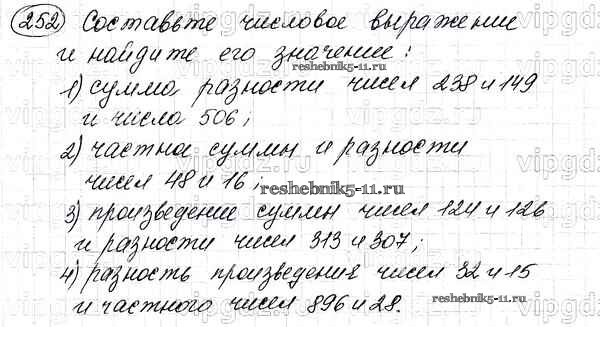 252) Составьте числовое выражение
и найдите его значение:
reshebnik5-11.ru
1) сумма разности чисел 238 и 149
и числа 506;
2) частна суммы и разности
чисел 48 и 16;
reshebnik5-11.ru
3) произведение суммы чисел 124 и 126
и разности чисел 313 и 307;
4) разность произведения чисел 32 и 15
и частного чисел 896 и 28.
reshebnik5-11.ru